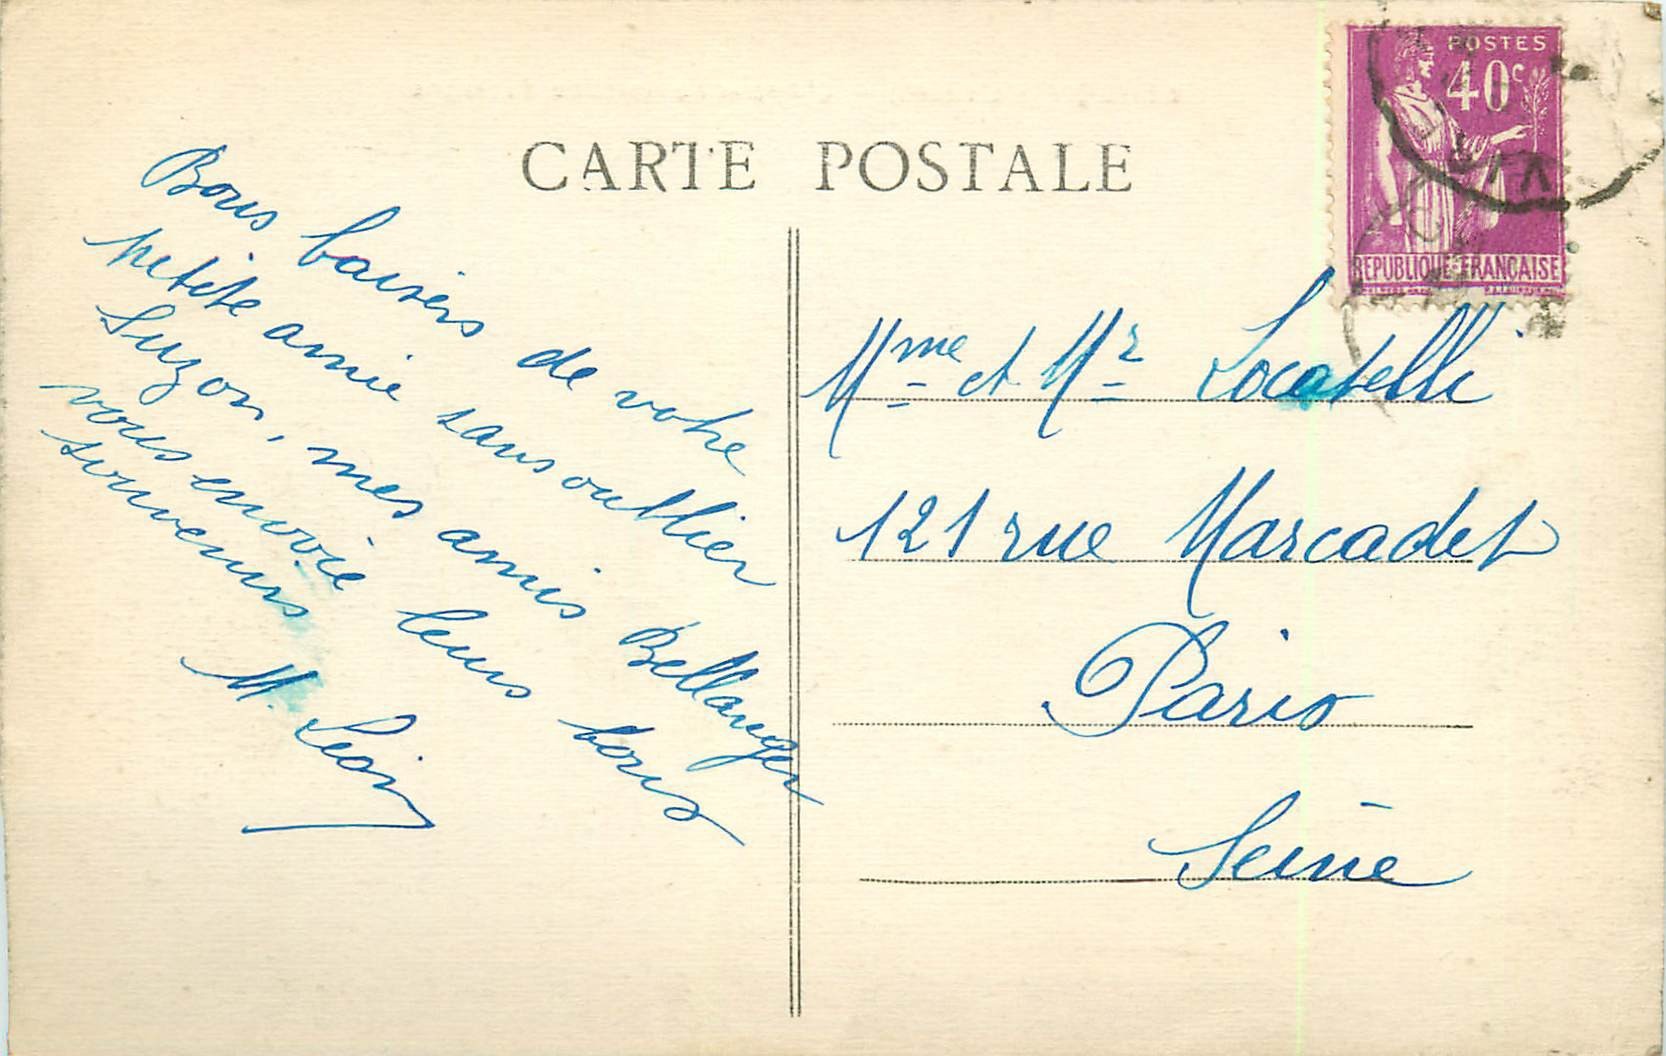 CARTE POSTALE
POSTES
40c
REPUBLIQUE FRANCAISE
Bons baisers de votre
petite amie sans oublier
Suzon, mes amis Bellanger
vous envoie leurs bons
souvenirs
M.
Mme et Mr Locatelli
121 rue Marcadet
Paris
Seine